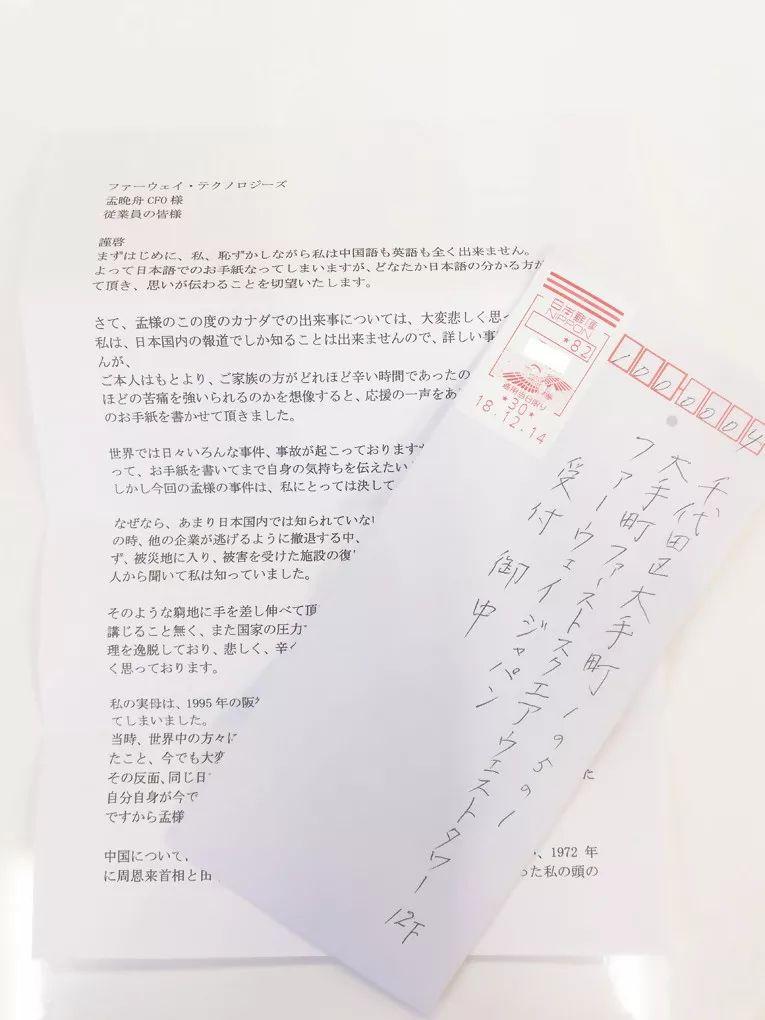 ファーウェイ・テクノロジーズ
孟晩舟 CFO 様
従業員の皆様
謹啓
まずはじめに、私、恥ずかしながら私は中国語も英語も全く出来ません。
よって日本語でのお手紙なってしまいますが、どなたか日本語の分かる方が
て頂き、思いが伝わることを切望いたします。
さて、孟様のこの度のカナダでの出来事については、大変悲しく思
私は、日本国内の報道でしか知ることは出来ませんので、詳しい事
んが、
ご本人はもとより、ご家族の方がどれほど辛い時間であったの
ほどの苦痛を強いられるのかを想像すると、応援の一声をあ
のお手紙を書かせて頂きました。
世界では日々いろんな事件、事故が起こっております
って、お手紙を書いてまで自身の気持ちを伝えたい
しかし今回の孟様の事件は、私にとっては決して
なぜなら、あまり日本国内では知られていな
の時、他の企業が逃げるように撤退する中、
ず、被災地に入り、被害を受けた施設の復
人から聞いて私は知っていました。
そのような窮地に手を差し伸べて頂
講じること無く、また国家の圧力
理を逸脱しており、悲しく、辛
く思っております。
私の実母は、1995 年の阪
てしまいました。
当時、世界中の方々に
たこと、今でも大変
その反面、同じ日
自分自身が今で
ですから孟様
に
中国について、
、1972 年
に周恩来首相と田
った私の頭の
日本郵便
NIPPON
*82
*30*
18.12.14
1000004
千代田区大手町1951
大手町ファーストスクエアウエストタワー 12F
ファーウェイジャパン
受付 御中